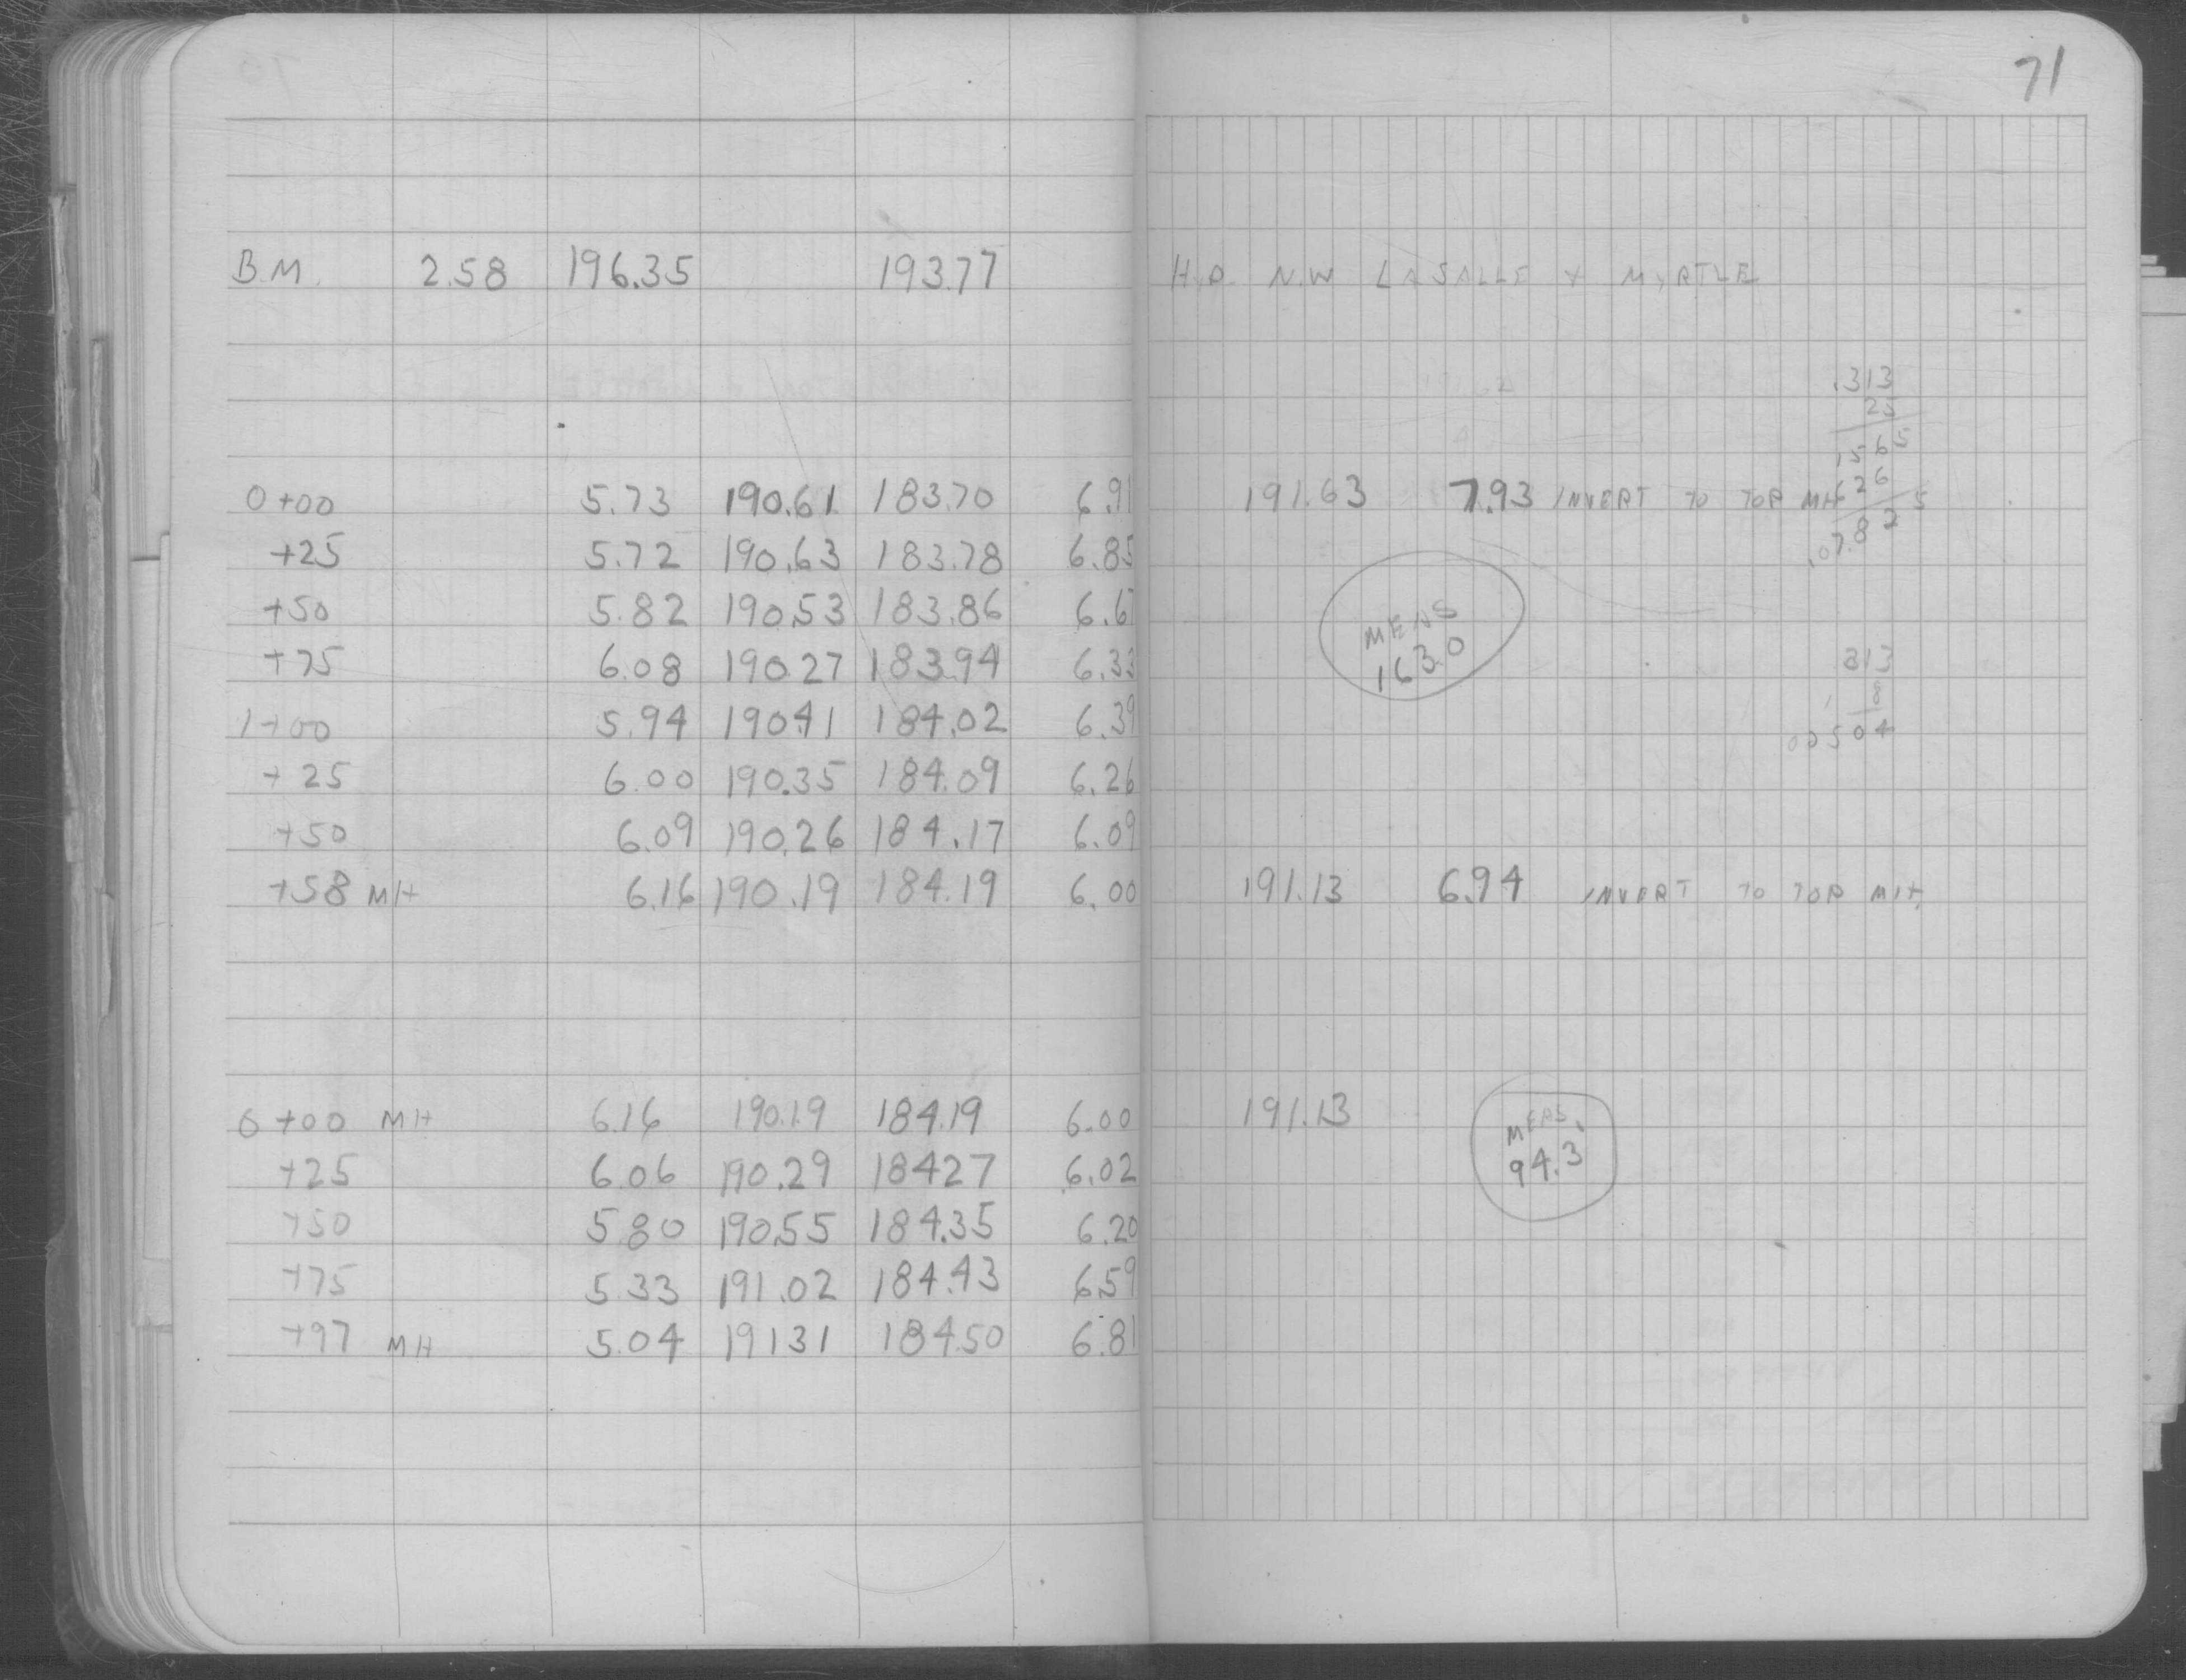 71
B.M. 2.58 196.35 193.77 HYD. N.W LASALLE + MYRTLE
.313
25
1565
626
.07825
0+00 5.73 190.61 183.70 6.91 191.63 7.93 INVERT TO TOP MH
+25 5.72 190.63 183.78 6.85
+50 5.82 190.53 183.86 6.67
MEAS
163.0
+75 6.08 190.27 183.94 6.33
313
8
1+00 5.94 190.41 184.02 6.39
00504
+25 6.00 190.35 184.09 6.26
+50 6.09 190.26 184.17 6.09
+58 MH 6.16 190.19 184.19 6.00 191.13 6.94 INVERT TO TOP MH.
0+00 MH 6.16 190.19 184.19 6.00 191.13
MEAS.
94.3
+25 6.06 190.29 184.27 6.02
+50 5.80 190.55 184.35 6.20
+75 5.33 191.02 184.43 6.59
+97 MH 5.04 191.31 184.50 6.81